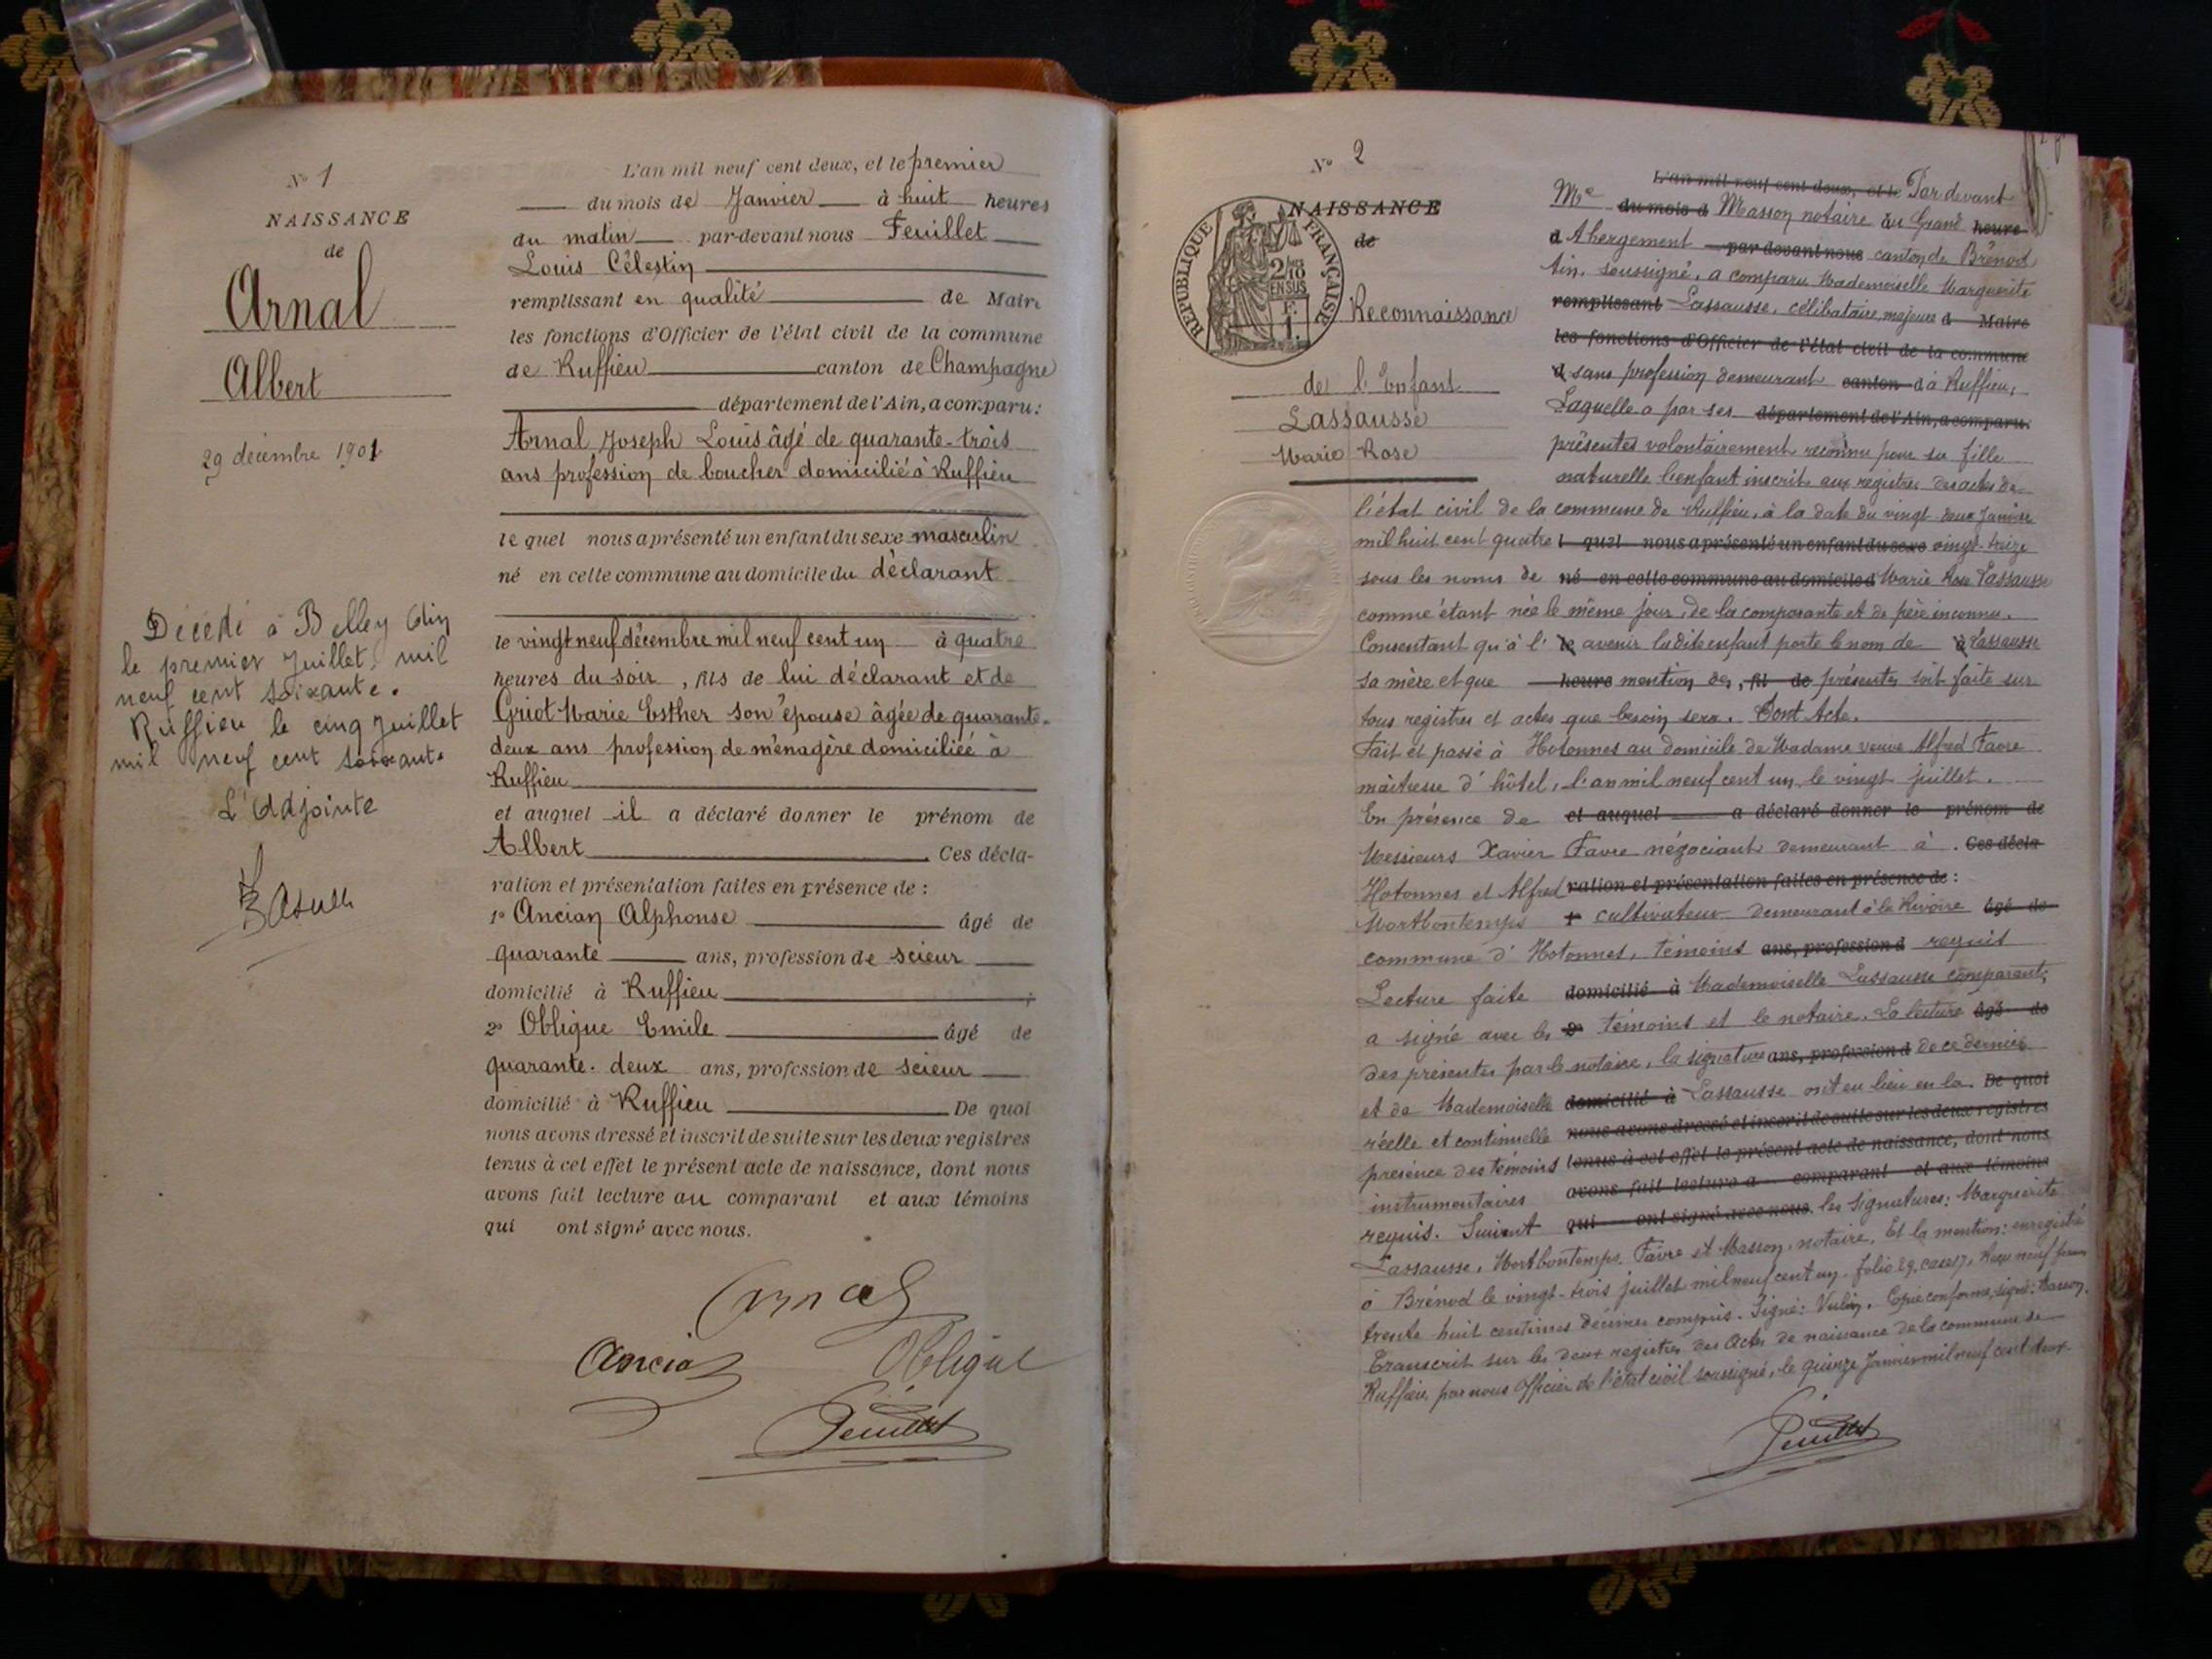 N° 1
NAISSANCE
de
Arnal
Albert
29 décembre 1901
Décédé à Belley Ain
le premier Juillet, mil
neuf cent soixante.
Ruffieu le cinq Juillet
mil neuf cent soixante
L'Adjointe
L'an mil neuf cent deux, et le premier
du mois de Janvier à huit heures
du matin par-devant nous Feuillet
Louis Célestin
remplissant en qualité de Maire
les fonctions d'Officier de l'état civil de la commune
de Ruffieu canton de Champagne
département de l'Ain, a comparu:
Arnal Joseph Louis âgé de quarante-trois
ans profession de boucher domicilié à Ruffieu
le quel nous a présenté un enfant du sexe masculin
né en cette commune au domicile du déclarant
le vingt neuf décembre mil neuf cent un à quatre
heures du soir, fils de lui déclarant et de
Griot Marie Esther son épouse âgée de quarante-
deux ans profession de ménagère domiciliée à
Ruffieu
et auquel il a déclaré donner le prénom de
Albert. Ces décla-
ration et présentation faites en présence de :
1° Ancian Alphonse âgé de
quarante ans, profession de scieur
domicilié à Ruffieu ;
2° Oblique Emile âgé de
quarante-deux ans, profession de scieur
domicilié à Ruffieu De quoi
nous avons dressé et inscrit de suite sur les deux registres
tenus à cet effet le présent acte de naissance, dont nous
avons fait lecture au comparant et aux témoins
qui ont signé avec nous.
Arnal
Ancian Oblique
Feuillet
N° 2
NAISSANCE
de
REPUBLIQUE FRANÇAISE
2/10 EN SUS
F. 1.
Reconnaissance
de l'Enfant
Lassausse
Marie Rose
L'an mil neuf cent deux, et le Par devant
Me du mois d Masson notaire au Grand heure
d Abergement par devant nous canton de Brénod
Ain, soussigné, a comparu Mademoiselle Marguerite
remplissant Lassausse, célibataire, majeure d Maire
les fonctions d'Officier de l'état civil de la commune
d sans profession demeurant canton d à Ruffieu,
Laquelle a par ses département de l'Ain, a comparu.
présentes volontairement reconnu pour sa fille
naturelle l'enfant inscrit aux registres des actes de
l'état civil de la commune de Ruffieu, à la date du vingt-deux Janvier
mil huit cent quatre l quel nous a présenté un enfant du sexe vingt-treize
sous les noms de né en cette commune au domicile d Marie Rose Lassausse
comme étant née le même jour, de la comparante et de père inconnu.
Consentant qu'à l' le avenir ladite enfant porte le nom de à Lassausse
sa mère et que heure mention des, fil de présentes soit faite sur
tous registres et actes que besoin sera. Dont Acte.
Fait et passé à Hotonnes au domicile de Madame veuve Alfred Favre
maîtresse d'hôtel, l'an mil neuf cent un, le vingt juillet.
En présence de et auquel a déclaré donner le prénom de
Messieurs Xavier Favre négociant demeurant à . Ces décla
Hotonnes et Alfred ration et présentation faites en présence de :
Mortbontemps 1° cultivateur demeurant à la Rivoire âgé de
commune d'Hotonnes, témoins ans, profession d requis
Lecture faite domicilié à Mademoiselle Lassausse comparant,
a signé avec les 2° témoins et le notaire. La lecture âgé de
des présentes par le notaire, la signature ans, profession d de ce dernier
et de Mademoiselle domicilié à Lassausse ont eu lieu en la De quoi
réelle et continuelle nous avons dressé et inscrit de suite sur les deux registres
présence des témoins tenus à cet effet le présent acte de naissance, dont nous
instrumentaires avons fait lecture a comparant et aux témoins
requis. Suivent qui ont signé avec nous. les signatures: Marguerite
Lassausse, Mortbontemps, Favre et Masson, notaire. Et la mention: enregistré
à Brénod le vingt-trois juillet mil neuf cent un, folio 29, case 17, Reçu neuf francs
trente huit centimes décimes compris. Signé: Vulin. Copie conforme, signé: Masson.
Transcrit sur les deux registres des Actes de naissance de la commune de
Ruffieu, par nous Officier de l'état civil soussigné, le quinze Janvier mil neuf cent deux.
Feuillet